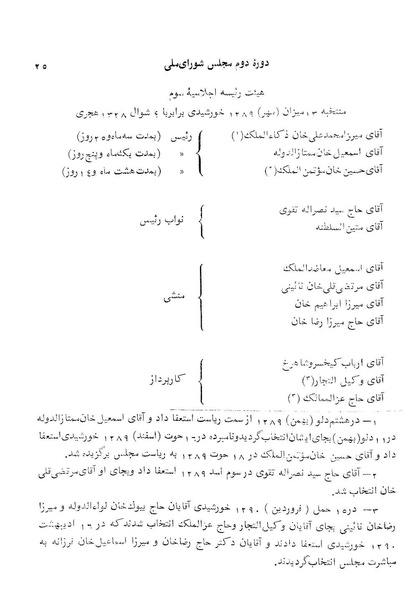 دورهٔ دوم مجلس شورای‌ملی ۲۵
هیئت رئیسه اجلاسیهٔ سوم
منتخبه ۱۳ میزان (مهر) ۱۲۸۹ خورشیدی برابر با ٤ شوال ۱۳۲۸ هجری
آقای میرزا محمدعلی‌خان ذکاءالملک(۱) رئیس (بمدت سه‌ماه و ۲۵ روز)
آقای اسمعیل خان ممتازالدوله » (بمدت یکماه و پنج‌روز)
آقای حسین خان مؤتمن الملک(۲) » (بمدت هشت ماه و ۱٤ روز)
آقای حاج سید نصراله تقوی
نواب رئیس
آقای متین‌السلطنه
آقای اسمعیل معاضدالملک
آقای مرتضی‌قلی خان نائینی
منشی
آقای میرزا ابراهیم خان
آقای حاج میرزا رضا خان
آقای ارباب کیخسرو شاهرخ
آقای وکیل التجار(۳) کارپرداز
آقای حاج عزالممالک(۳)
۱ــ درهشتم دلو (بهمن) ۱۲۸۹ از سمت ریاست استعفا داد و آقای اسمعیل خان ممتازالدوله
در ۱۱ دلو (بهمن) بجای ایشان انتخاب گردید ونامبرده در ۱٦ حوت (اسفند) ۱۲۸۹ خورشیدی استعفا
و آقای حسین خان مؤتمن الملک در ۱۸ حوت ۱۲۸۹ به ریاست مجلس برگزیده شد.
۲ــ آقای حاج سید نصراله تقوی در سوم اسد ۱۲۸۹ استعفا داد وبجای او آقای مرتضی قلی
خان انتخاب شد.
۳ــ در ۱۵ حمل (فروردین) ۱۲۹۰ خورشیدی آقایان حاج بیوک خان لواءالدوله و میرزا
رضاخان نائینی بجای آقایان وکیل‌التجار وحاج عزالملک انتخاب شدند که در ۱٦ اردیبهشت
۱۲۹۰ خورشیدی استعفا دادند و آقایان دکتر حاج رضاخان و میرزا اسماعیل خان فرزانه به
مباشرت مجلس انتخاب گردیدند.